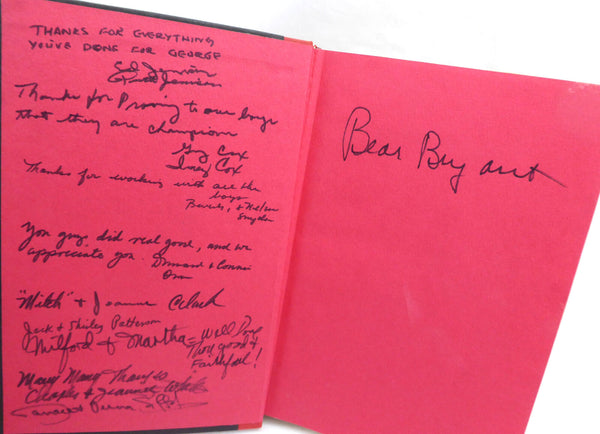 THANKS FOR EVERYTHING
YOU'VE DONE FOR GEORGE
Ed Jennison
Jennison
Thanks for Proving to our boys
that they are champions
Guy Cox
Inez Cox
Thanks for working with all the
boys
Beverly, & Nelson
Snyder
You guys did real good, and we
appreciate you. & Connie
Orr
"Mitch" & Joanne Clark
Jack & Shirley Patterson
Milford & Martha = Well Done
Thou good &
Faithful!
Many Many Thanks
Charles & Jeanne
Bear Bryant